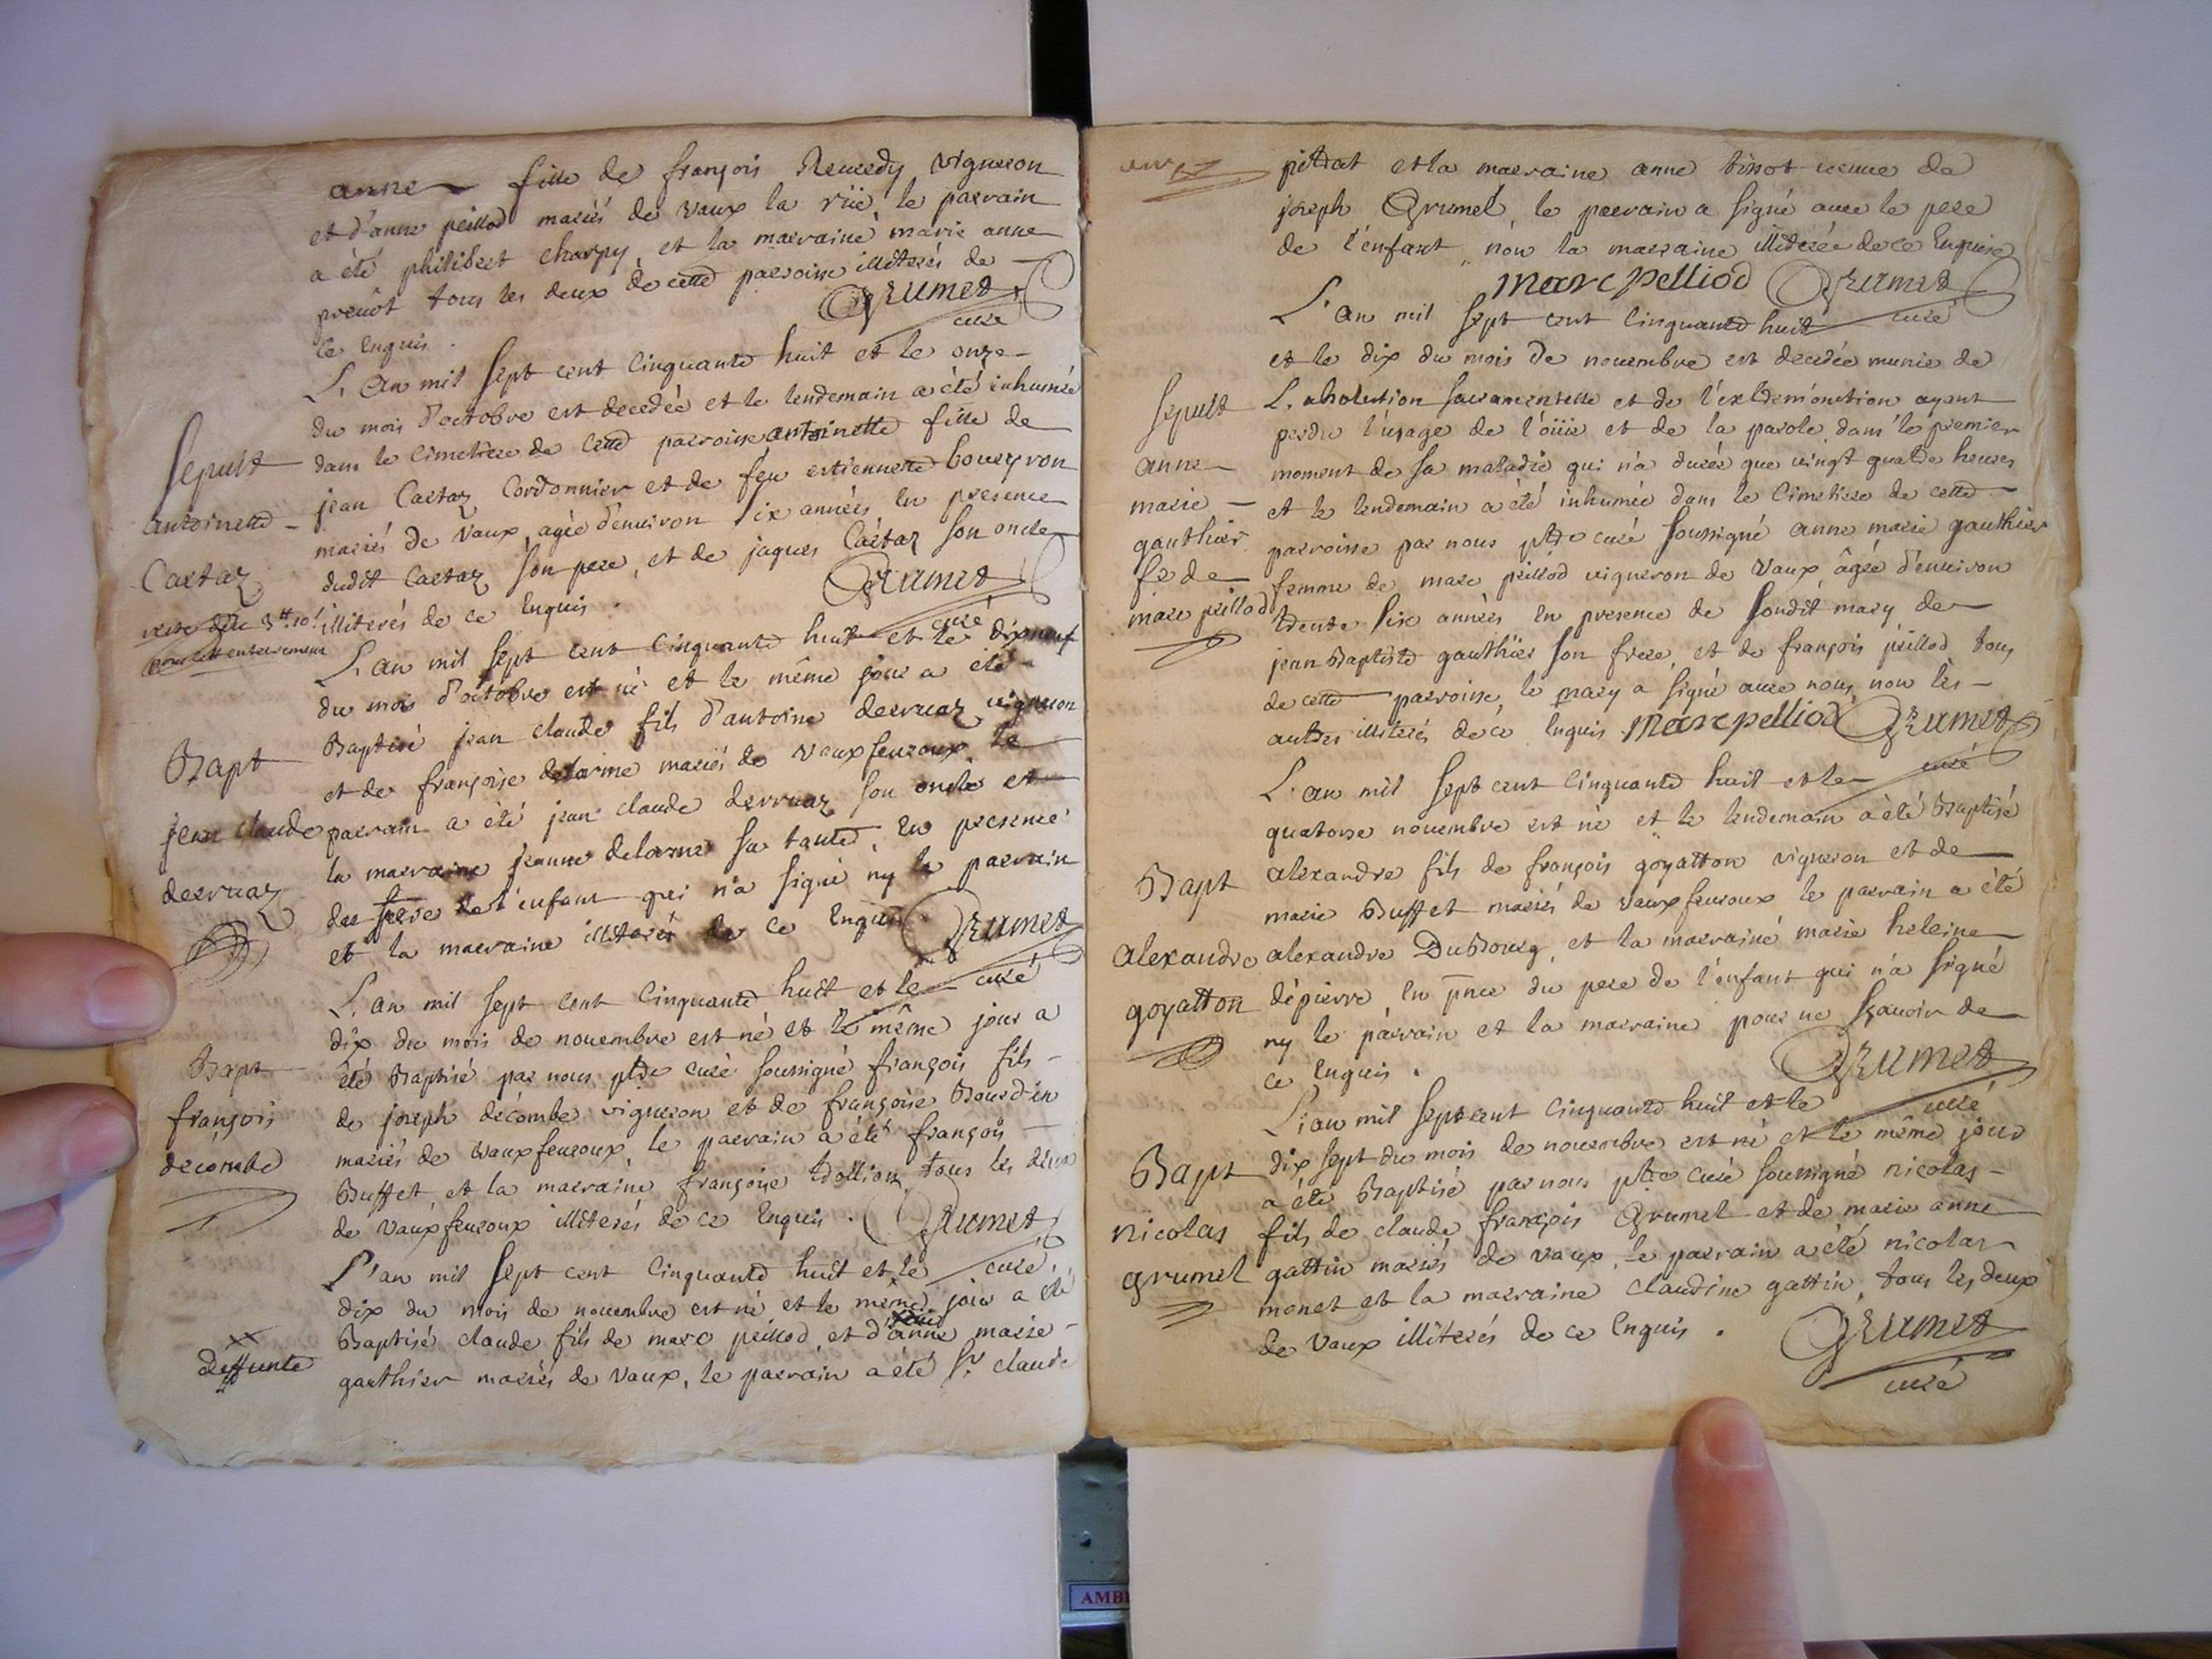 anne fille de françois Remedy vigneron
et d'anne peillod mariés de vaux la rüe, le parrain
a été philibert charpy, et la marraine marie anne
preuôt tous les deux de cette parroisse illiterés de
ce Enquis.
Grumet
curé
L'an mil sept cent Cinquante huit et le onze
du mois d'octobre est decedée et le lendemain a été inhumée
Sepult
dans le Cimetiere de Cette parroisse antoinette fille de
Antoinette
jean Cartaz Cordonnier et de feu estiennette bouvyron
mariés de Vaux, agée d'enuiron six années En presence
Cartaz
dudit Cartaz son pere, et de jaques Cartaz son oncle
illiterés de ce Enquis.
Grumet
curé
L'an mil sept cent Cinquante huit et le dixneuf
du mois d'octobre est né et le même jour a été
Bapt
Baptisé jean claude fils d'antoine derruaz vigneron
et de françoise delorme mariés de vauxfeuroux le
jean claude
parrain a été jean claude derruaz son oncle et
derruaz
la marraine jeanne delorme sa tante, En presence
du pere de l'enfant qui n'a signé ny le parrain
et la marraine illiterés de ce Enquis
Grumet
curé
L'an mil sept cent Cinquante huit et le
dix du mois de nouembre est né et le même jour a
Bapt
été Baptisé par nous ptre curé soussigné françois fils
françois
de joseph décombe vigneron et de françoise Bourdin
décombe
mariés de vauxfeuroux, le parrain a été françois
Buffet et la marraine françoise tous les deux
de vauxfeuroux illiterés de ce Enquis.
Grumet
curé
L'an mil sept cent Cinquante huit et le
dix du mois de nouembre est né et le meme jour a été
Baptisé claude fils de marc peillod et d'anne marie
deffunte
gauthier mariés de Vaux, le parrain a été sr. claude
pittat et la marraine anne tissot ueuue de
joseph Grumet, le parrain a signé auec le pere
de l'enfant, non la marraine illiterée de ce Enquise
marc pelliod Grumet
curé
L'an mil sept cent Cinquante huit
et le dix du mois de nouembre est decedée munie de
Sepult
L'absolution sacramentelle et de l'extremonction ayant
perdu l'usage de l'oüie et de la parole dans le premier
anne
moment de sa maladie qui n'a durée que uingt quatre heures
marie
et le lendemain a été inhumée dans le Cimetiere de cette
gauthier
parroisse par nous ptre curé soussigné anne marie gauthier
fe de
femme de marc peillod uigneron de Vaux, âgée d'enuiron
marc peillod
trente six années En presence de sondit mary de
jean Baptiste gauthier son frere, et de françois peillod tous
de cette parroisse, le mary a signé auec nous, non les
autres illiterés de ce Enquis marc pelliod Grumet
curé
L'an mil sept cent Cinquante huit et le
quatorse nouembre est né et le lendemain a été Baptisé
Bapt
alexandre fils de françois goyatton vigneron et de
marie Buffet mariés de vauxfeuroux le parrain a été
alexandre
alexandre DuBourg, et la marraine marie heleine
goyatton
dépierre, En pnce du pere de l'enfant qui n'a signé
ny le parrain et la marraine pour ne sçauoir de
ce Enquis.
Grumet
curé
L'an mil sept cent Cinquante huit et le
dix sept du mois de nouembre est né et le même jour
Bapt
a été Baptisé par nous ptre curé soussigné nicolas
nicolas
fils de claude françois Grumet et de marie anne
grumet
gattin mariés de vaux, le parrain a été nicolas
monet et la marraine claudine gattin, tous les deux
de Vaux illiterés de ce Enquis.
Grumet
curé